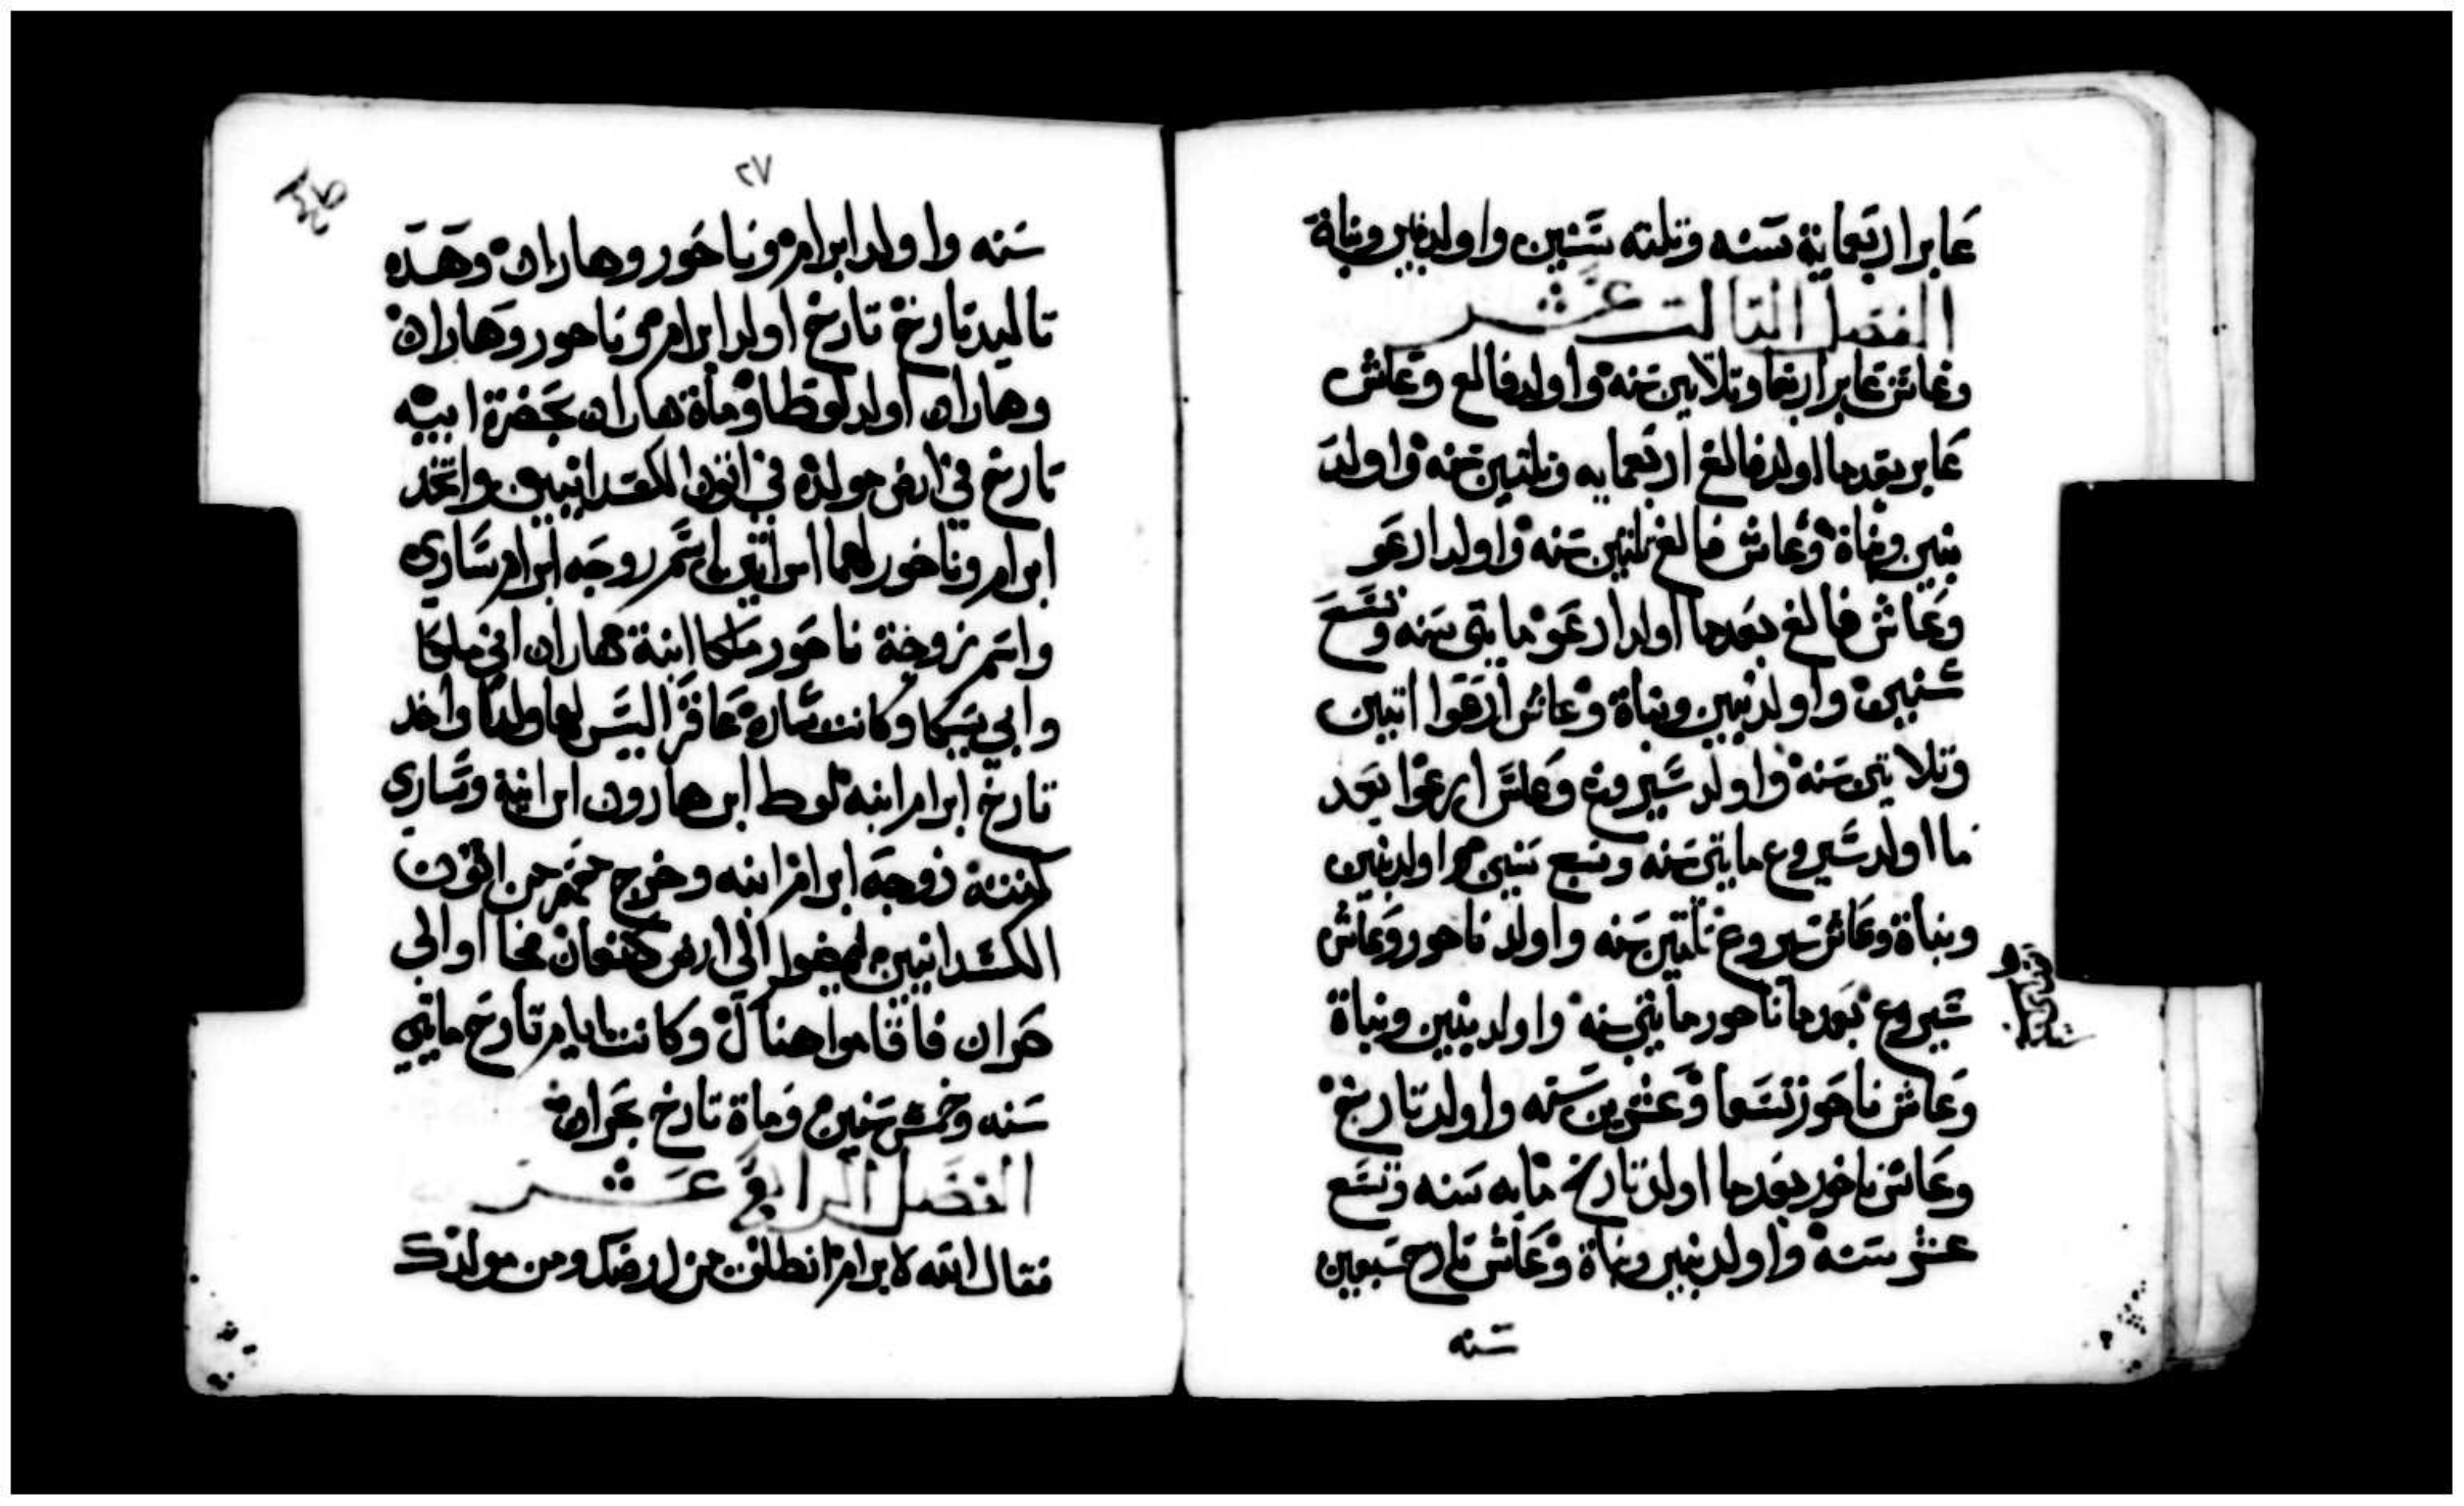 عابر اربعماية سنه وتلته سنين واولد بنين وبناة
الفصل التالت عشر
وعاش عابر اربعا وتلاتين سنه واولد فالع وعاش
عابر بعدما اولد فالغ اربعمايه وتلتين سنه واولد
بنين وبناة وعاش فالغ تلتين سنه واولد ارعو
وعاش فالغ بعدما اولد ارعو مايتى سنه وتسع
سنين واولد بنين وبناة وعاش ارعوا اتنين
وتلاتين سنه واولد سيروع وعاش ارعوا بعد
ما اولد سيروع مايتى سنه وسبع سنين واولد بنين
وبناة وعاش سيروع تلتين سنه واولد ناحور وعاش
سيروع بعدما ناحور مايتي سنه واولد بنين وبناة
وعاش ناحور تسعا وعشرين سنه واولد تارخ
وعاش ناحور بعدما اولد تارخ مايه سنه وتسع
عشر سنه واولد بنين وبناة وعاش تارح سبعين
سنه
٢٧
سنه واولد ابرام وناحور وهاران وهده
تاليد تارخ تارخ اولد ابرام وناحور وهاران
وهاران اولد لوطا وماة هاران بحضرة ابيه
تارخ في ارض مولده في اتون الكسدانيين واتخد
ابرام وناحور لهما امراتين اسم زوجه ابرام ساري
واسم زوجة ناحور ملكا ابنة هاران ابي ملكا
وابي يسكا وكانت ساره عاقر اليس لها ولدا واخد
تارخ ابرام ابنه لوط ابن هارون ابن ابنه وساري
كنته زوجه ابرام ابنه وخرج معهم من اتون
الكسدانيين ليمضوا الى ارض كنعان فجاوا الي
حران فاقاموا هناك وكانت ايام تارخ مايتي
سنه وخمس سنين وماة تارخ بحران
الفصل الرابع عشر
فقال الله لابرام انطلق من ارضك ومن مولدك